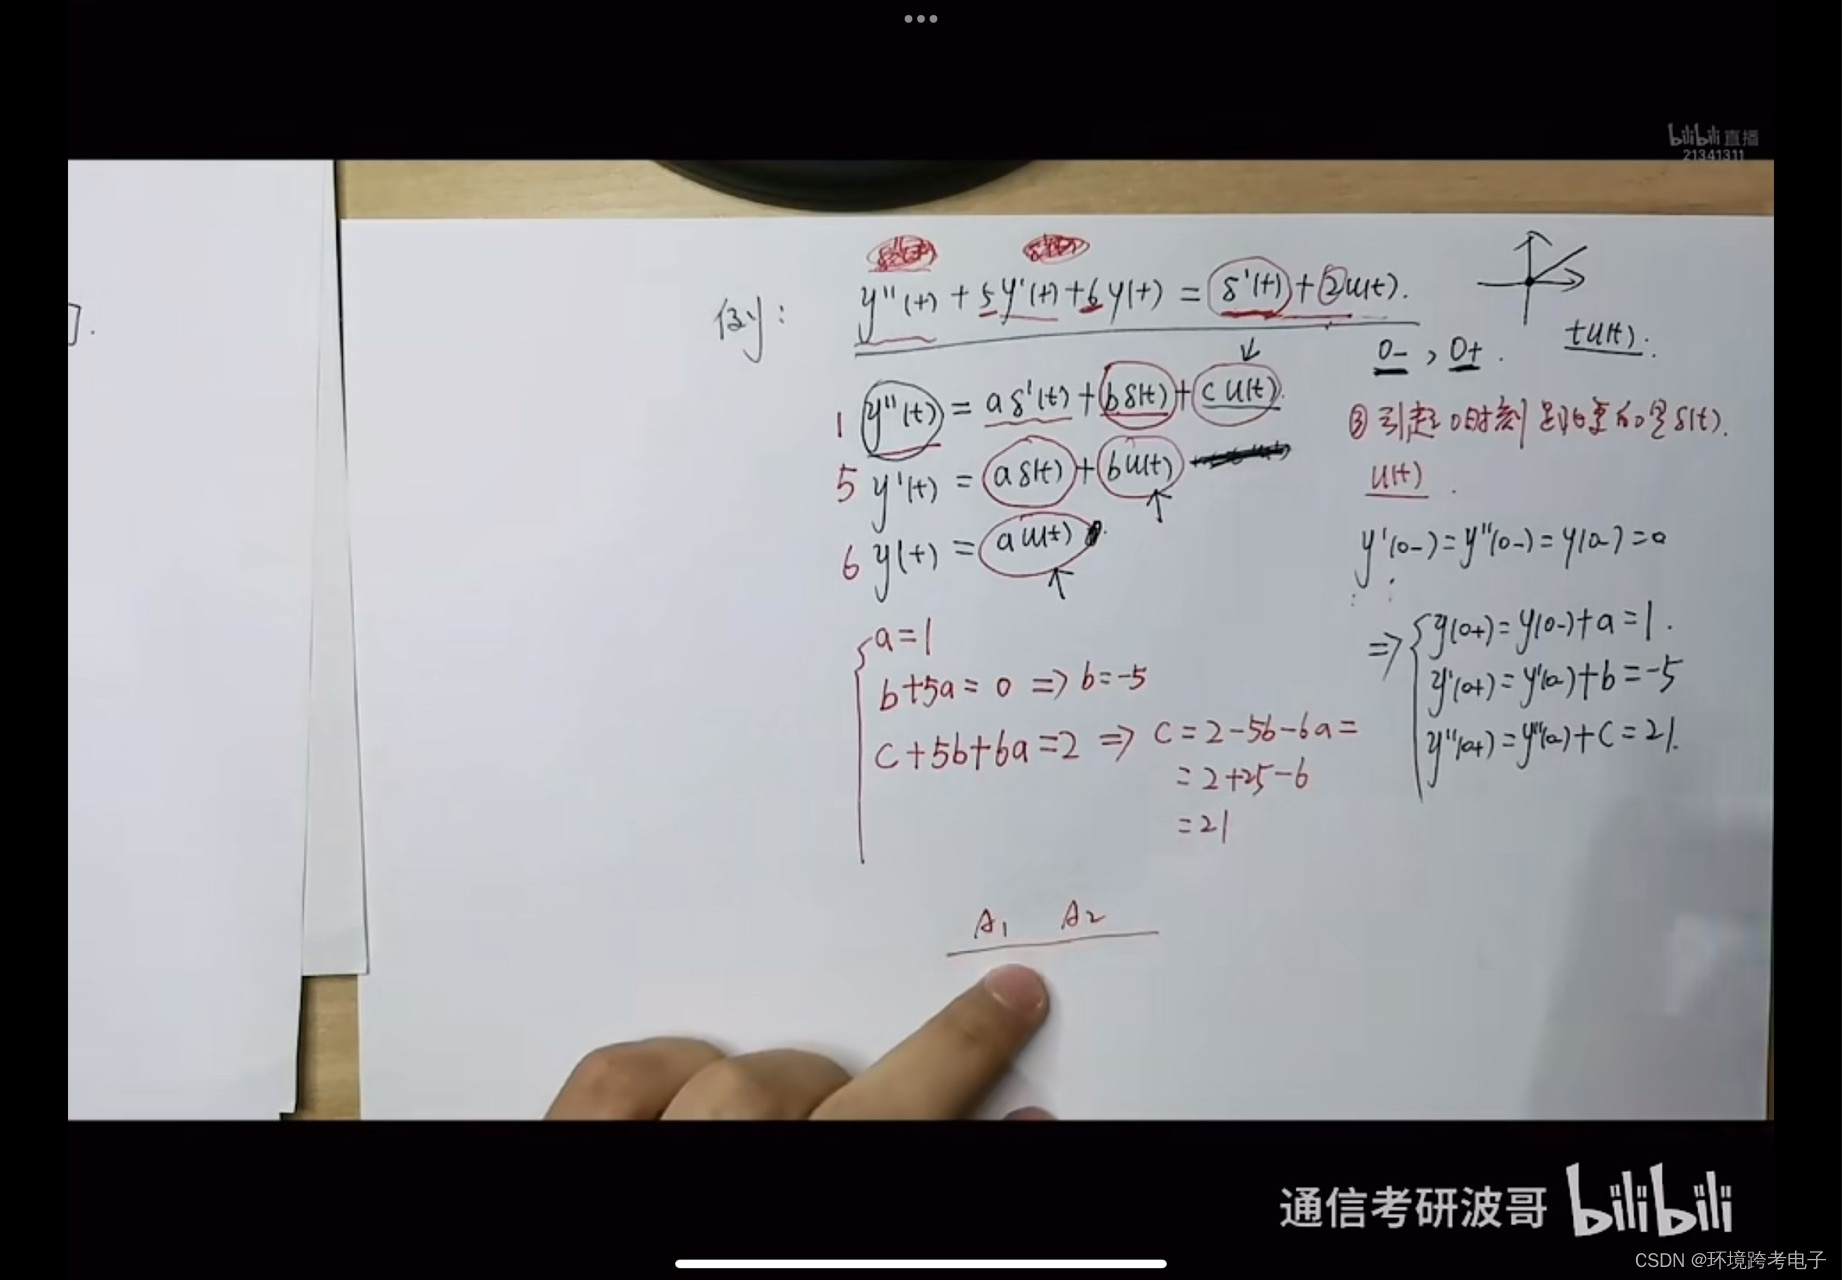 bilibili 直播
21341311
例: y''(t) + 5y'(t) + 6y(t) = δ'(t) + 2u(t).
tu(t).
0- , 0+ .
1 y''(t) = aδ'(t) + bδ(t) + cu(t).
5 y'(t) = aδ(t) + bu(t)
6 y(t) = au(t)
③ 引起0时刻
δ(t).
u(t) .
y'(0-) = y''(0-) = y(0-) = 0
a = 1
b+5a = 0 ⇒ b = -5
c+5b+6a = 2 ⇒ c = 2-5b-6a =
= 2+25-6
= 21
⇒ y(0+) = y(0-) + a = 1.
y'(0+) = y'(0-) + b = -5
y''(0+) = y''(0-) + c = 21.
A1 A2
通信考研波哥 bilibili
CSDN @环境跨考电子